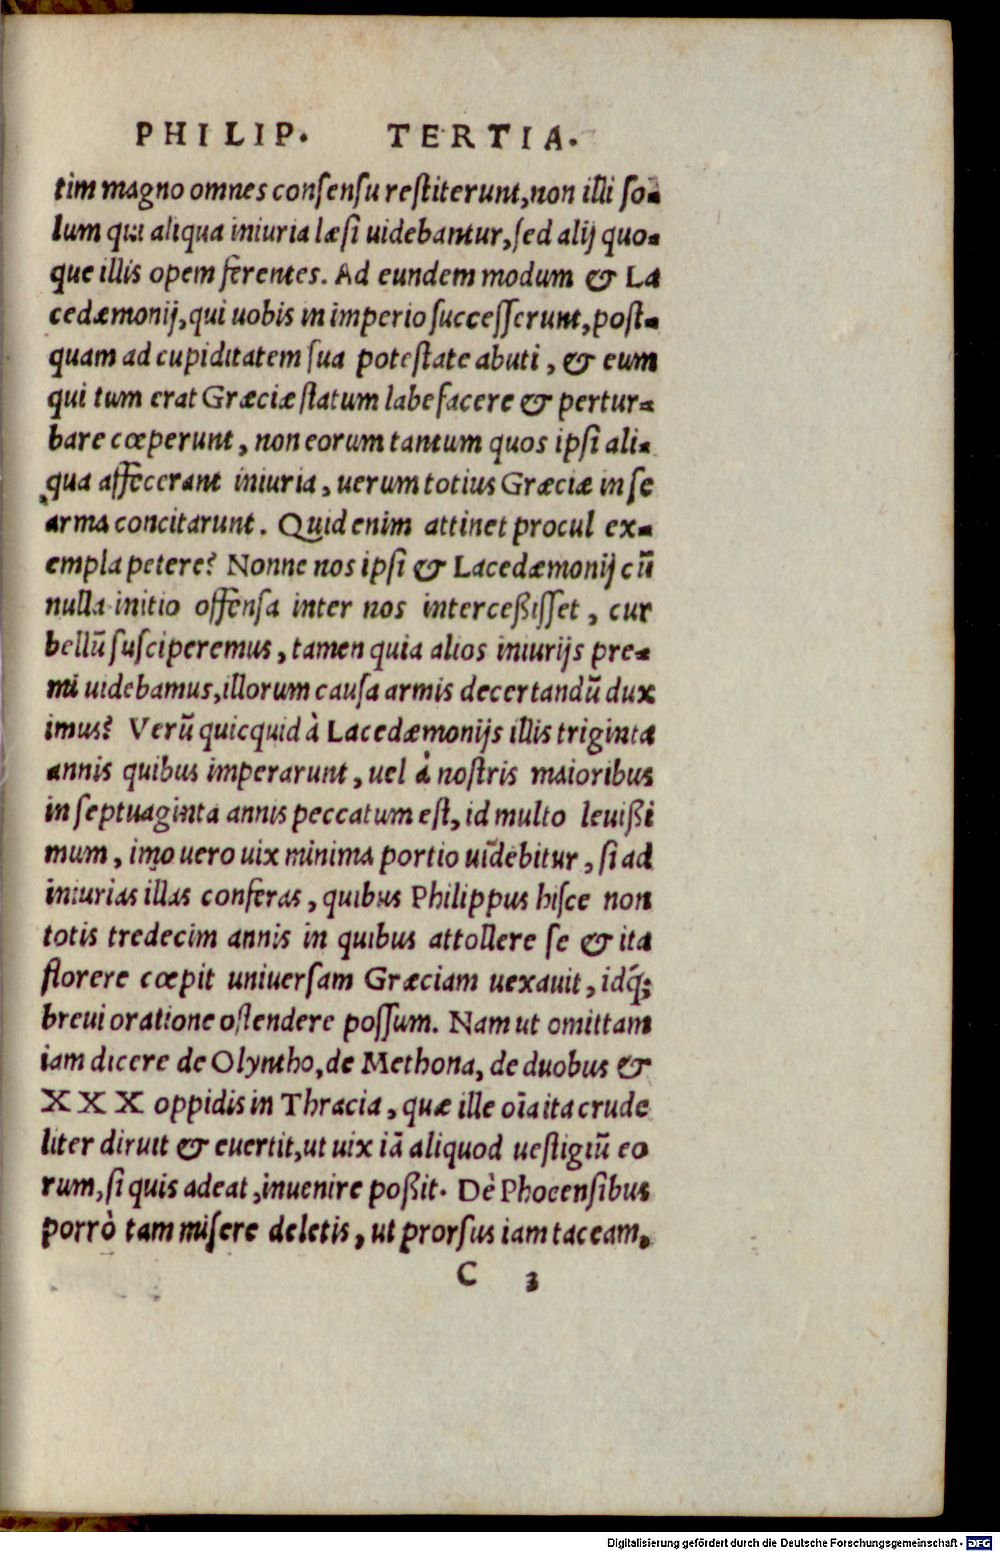 PHILIP. TERTIA.
tim magno omnes consensu restiterunt, non illi so-
lum qui aliqua iniuria læsi uidebantur, sed alij quo-
que illis opem ferentes. Ad eundem modum & La
cedæmonij, qui uobis in imperio successerunt, post-
quam ad cupiditatem sua potestate abuti, & eum
qui tum erat Græciæ statum labefacere & pertur-
bare cœperunt, non eorum tantum quos ipsi ali-
qua affecerant iniuria, uerum totius Græciæ in se
arma concitarunt. Quid enim attinet procul ex-
empla petere? Nonne nos ipsi & Lacedæmonij cũ
nulla initio offensa inter nos interceßisset, cur
bellũ susciperemus, tamen quia alios iniurijs pre-
mi uidebamus, illorum causa armis decertandũ dux
imus? Verũ quicquid à Lacedæmonijs illis triginta
annis quibus imperarunt, uel à nostris maioribus
in septuaginta annis peccatum est, id multo leuißi
mum, imo uero uix minima portio uidebitur, si ad
iniurias illas conferas, quibus Philippus hisce non
totis tredecim annis in quibus attollere se & ita
florere cœpit uniuersam Græciam uexauit, idq́;
breui oratione ostendere possum. Nam ut omittam
iam dicere de Olyntho, de Methona, de duobus &
XXX oppidis in Thracia, quæ ille oĩa ita crude
liter diruit & euertit, ut uix iã aliquod uestigiũ eo
rum, si quis adeat, inuenire poßit. Dè Phocensibus
porrò tam misere deletis, ut prorsus iam taceam,
C 3
Digitalisierung gefördert durch die Deutsche Forschungsgemeinschaft - DFG